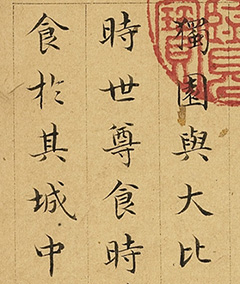 獨園與大比
時世尊食時
食於其城中